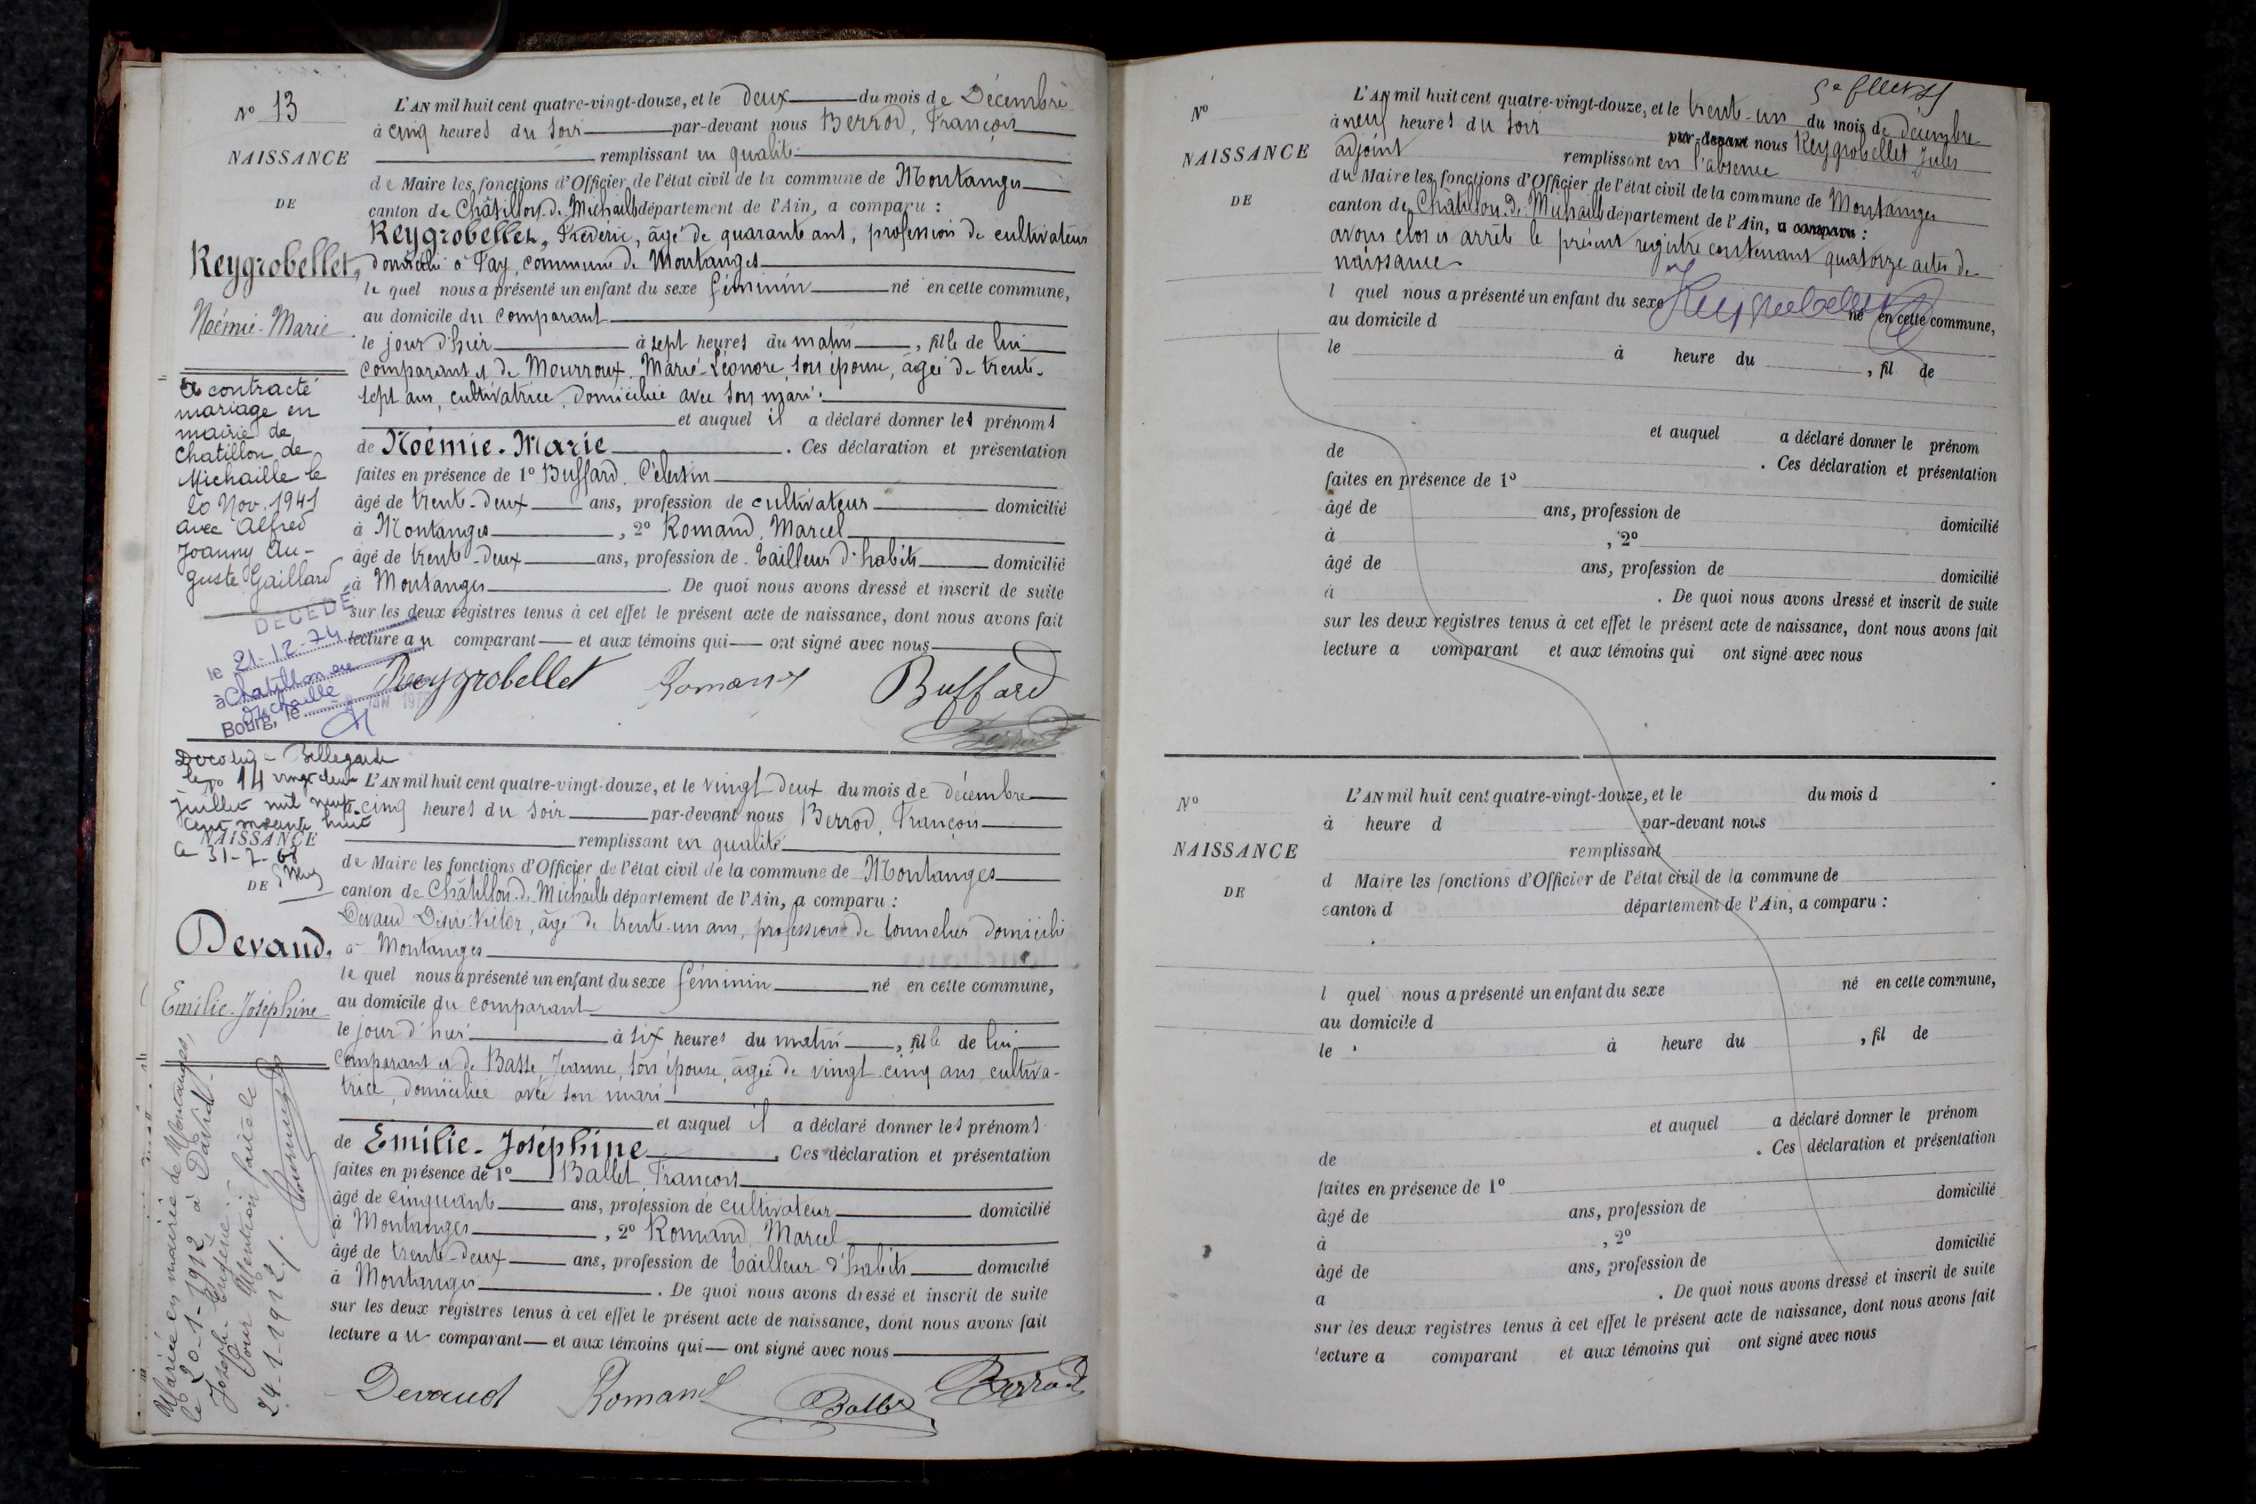 No 13
NAISSANCE
DE
Reygrobellet,
Noémie-Marie
L'AN mil huit cent quatre-vingt-douze, et le deux du mois de Décembre
à cinq heures du soir par-devant nous Berrod, François
remplissant en qualité
de Maire les fonctions d'Officier de l'état civil de la commune de Montanges
canton de Châtillon de Michaille département de l'Ain, a comparu :
Reygrobellet, Frédéric, âgé de quarante ans, profession de cultivateur
domicilié à Fay, commune de Montanges
le quel nous a présenté un enfant du sexe féminin né en cette commune,
au domicile du comparant
le jour d'hier à sept heures du matin, fille de lui
comparant et de Mourroux, Marie-Léonore, son épouse, âgée de trente-
sept ans, cultivatrice, domiciliée avec son mari.
et auquel il a déclaré donner les prénoms
de Noémie-Marie. Ces déclaration et présentation
faites en présence de 1º Buffard, Célestin
âgé de trente-deux ans, profession de cultivateur domicilié
à Montanges, 2º Romand, Marcel
âgé de trente-deux ans, profession de tailleur d'habits domicilié
à Montanges De quoi nous avons dressé et inscrit de suite
sur les deux registres tenus à cet effet le présent acte de naissance, dont nous avons fait
lecture au comparant et aux témoins qui ont signé avec nous
Reygrobellet Romand Buffard
Berrod
a contracté
mariage en
mairie de
Chatillon de
Michaille le
20 Nov. 1941
avec Alfred
Joanny Au-
guste Gaillard
DECEDÉ
le 21-12-74
à Chatillon en
Michaille
Bourg, le
Bellegarde
le vingt deux
juillet mil neuf
cent soixante huit
Le 31-7-68
No 14
NAISSANCE
DE
Devaud,
Emilie-Joséphine
L'AN mil huit cent quatre-vingt-douze, et le vingt deux du mois de décembre
à cinq heures du soir par-devant nous Berrod, François
remplissant en qualité
de Maire les fonctions d'Officier de l'état civil de la commune de Montanges
canton de Châtillon de Michaille département de l'Ain, a comparu :
Devaud Désiré Victor, âgé de trente-un ans, profession de tonnelier domicilié
à Montanges
le quel nous a présenté un enfant du sexe féminin né en cette commune,
au domicile du comparant
le jour d'hier à six heures du matin, fille de lui
comparant et de Basse, Jeanne, son épouse, âgée de vingt-cinq ans, cultiva-
trice, domiciliée avec son mari
et auquel il a déclaré donner les prénoms
de Emilie-Joséphine. Ces déclaration et présentation
faites en présence de 1º Ballet, François
âgé de cinquante ans, profession de cultivateur domicilié
à Montanges, 2º Romand, Marcel
âgé de trente-deux ans, profession de tailleur d'habits domicilié
à Montanges. De quoi nous avons dressé et inscrit de suite
sur les deux registres tenus à cet effet le présent acte de naissance, dont nous avons fait
lecture au comparant et aux témoins qui ont signé avec nous
Devaud Romand Ballet Berrod
Mariée en mairie de Montanges,
le 20-1-1912 à David
Joseph-Eugène.
Pour Mention faite le
24-1-1912.
No
NAISSANCE
DE
L'AN mil huit cent quatre-vingt-douze, et le trente-un du mois de décembre
à neuf heures du soir par-devant nous Reygrobellet Jules
adjoint remplissant en l'absence
du Maire les fonctions d'Officier de l'état civil de la commune de Montanges
canton de Châtillon de Michaille département de l'Ain, a comparu :
avons clos et arrêté le présent registre contenant quatorze actes de
naissance
l quel nous a présenté un enfant du sexe né en cette commune,
Reygrobellet
au domicile d
le à heure du , fil de
et auquel a déclaré donner le prénom
de . Ces déclaration et présentation
faites en présence de 1º
âgé de ans, profession de domicilié
à , 2º
âgé de ans, profession de domicilié
à . De quoi nous avons dressé et inscrit de suite
sur les deux registres tenus à cet effet le présent acte de naissance, dont nous avons fait
lecture a comparant et aux témoins qui ont signé avec nous
No
NAISSANCE
DE
L'AN mil huit cent quatre-vingt-douze, et le du mois d
à heure d par-devant nous
remplissant
d Maire les fonctions d'Officier de l'état civil de la commune de
canton d département de l'Ain, a comparu :
l quel nous a présenté un enfant du sexe né en cette commune,
au domicile d
le à heure du , fil de
et auquel a déclaré donner le prénom
de . Ces déclaration et présentation
faites en présence de 1º
âgé de ans, profession de domicilié
à , 2º
âgé de ans, profession de domicilié
a . De quoi nous avons dressé et inscrit de suite
sur les deux registres tenus à cet effet le présent acte de naissance, dont nous avons fait
lecture a comparant et aux témoins qui ont signé avec nous